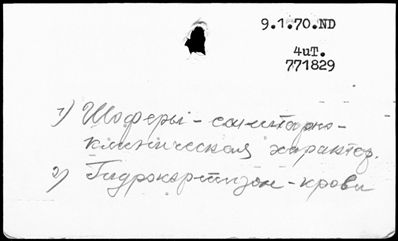 9.1.70.ND
4иT.
771829
1) Шоферы - санитарно-
клиническая характ.
2) Гидрокортизон - крови